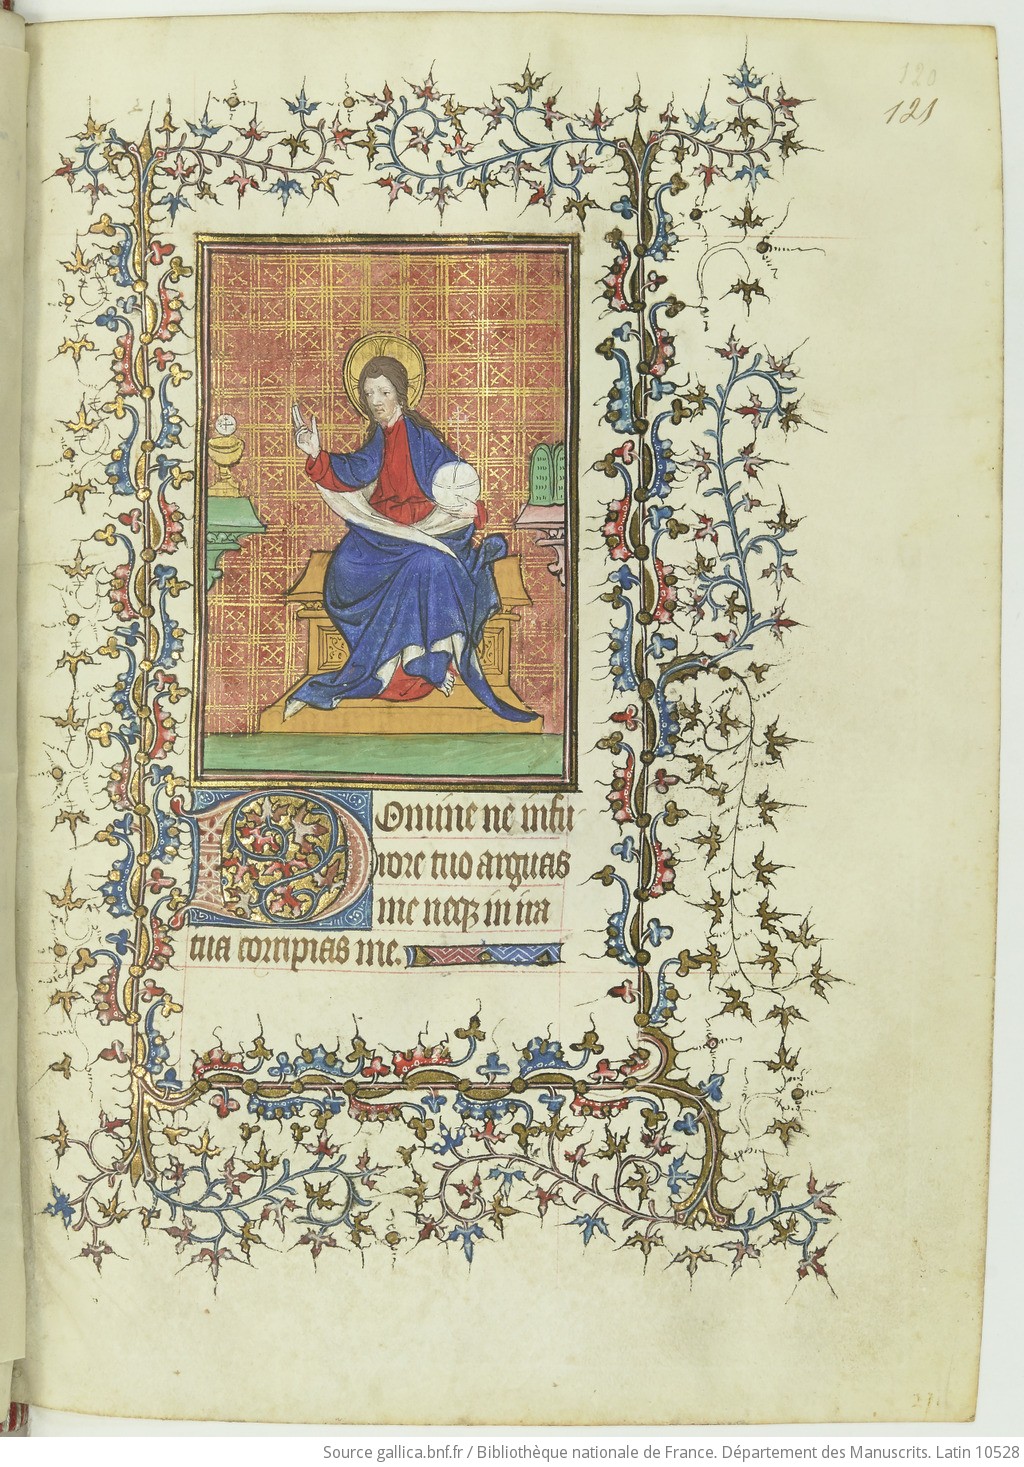 120
121
Domine ne infu
rore tuo arguas
me neqꝫ in ira
tua corripias me.
Source gallica.bnf.fr / Bibliothèque nationale de France. Département des Manuscrits. Latin 10528